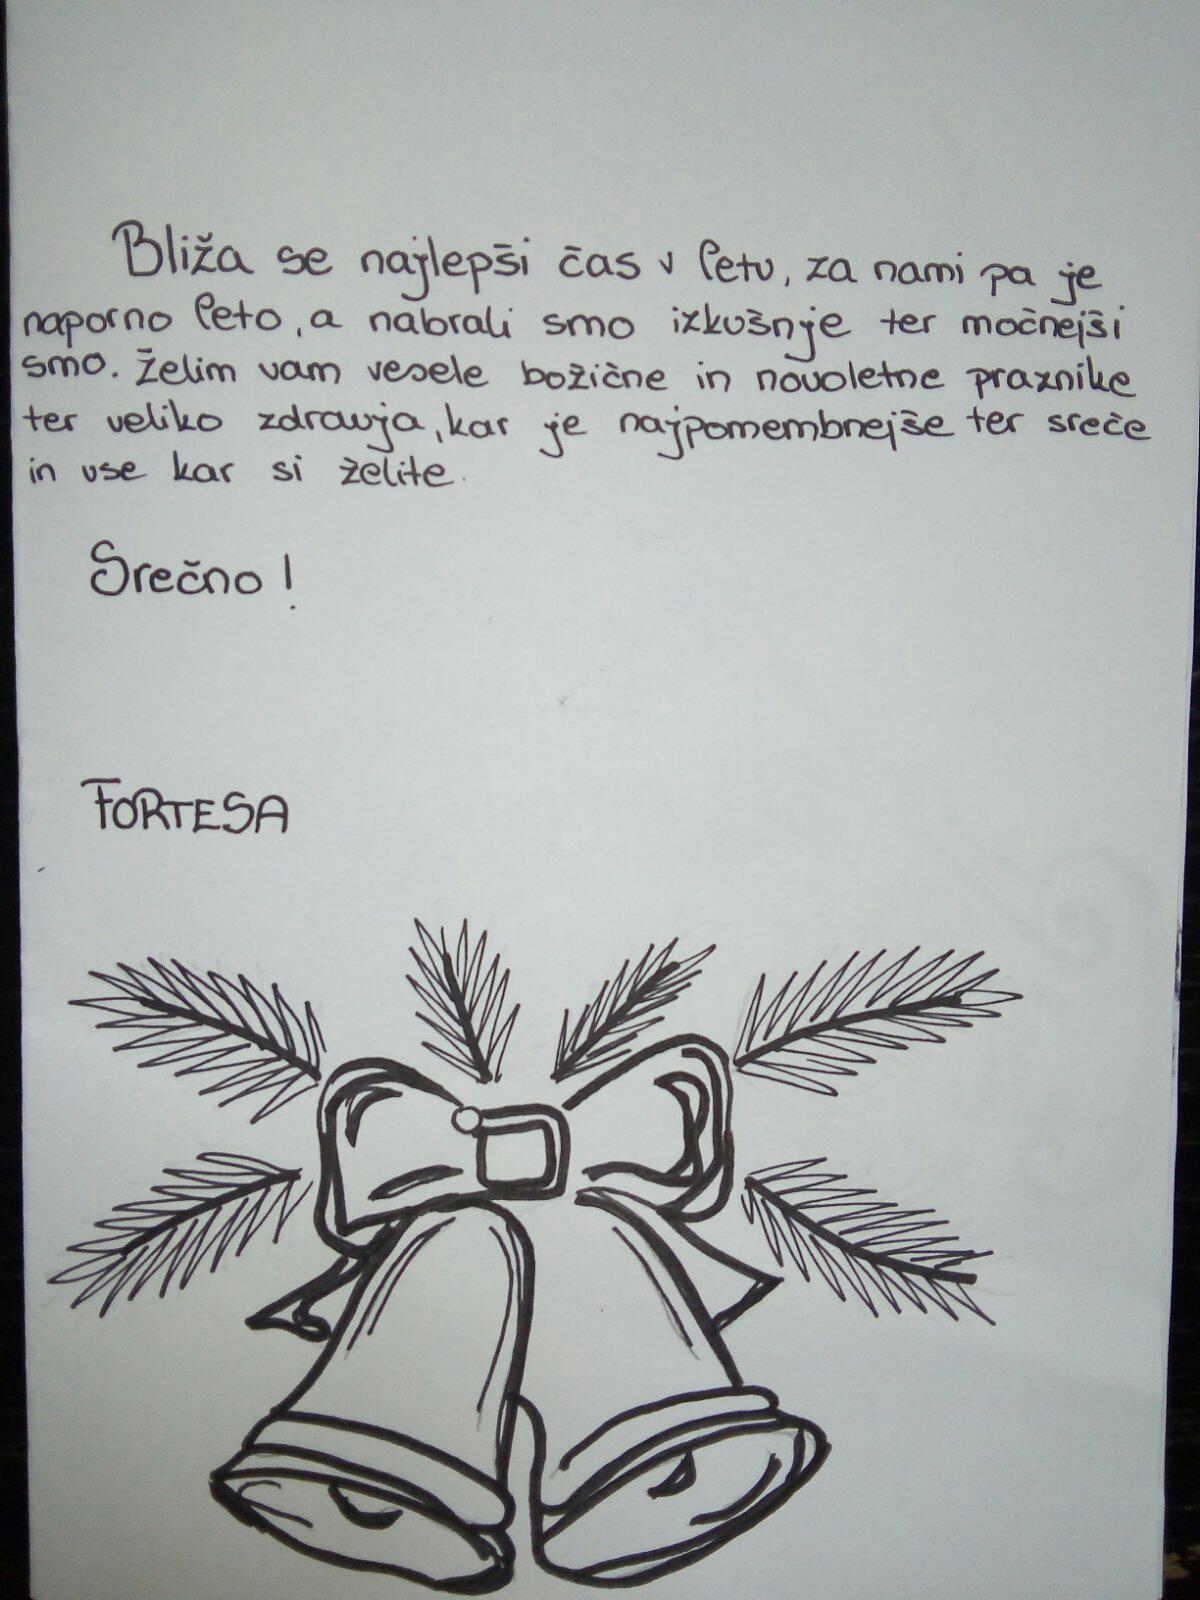 Bliža se najlepši čas v letu, za nami pa je
naporno leto, a nabrali smo izkušnje ter močnejši
smo. Želim vam vesele božične in novoletne praznike
ter veliko zdravja, kar je najpomembnejše ter sreče
in vse kar si želite.
Srečno!
FORTESA